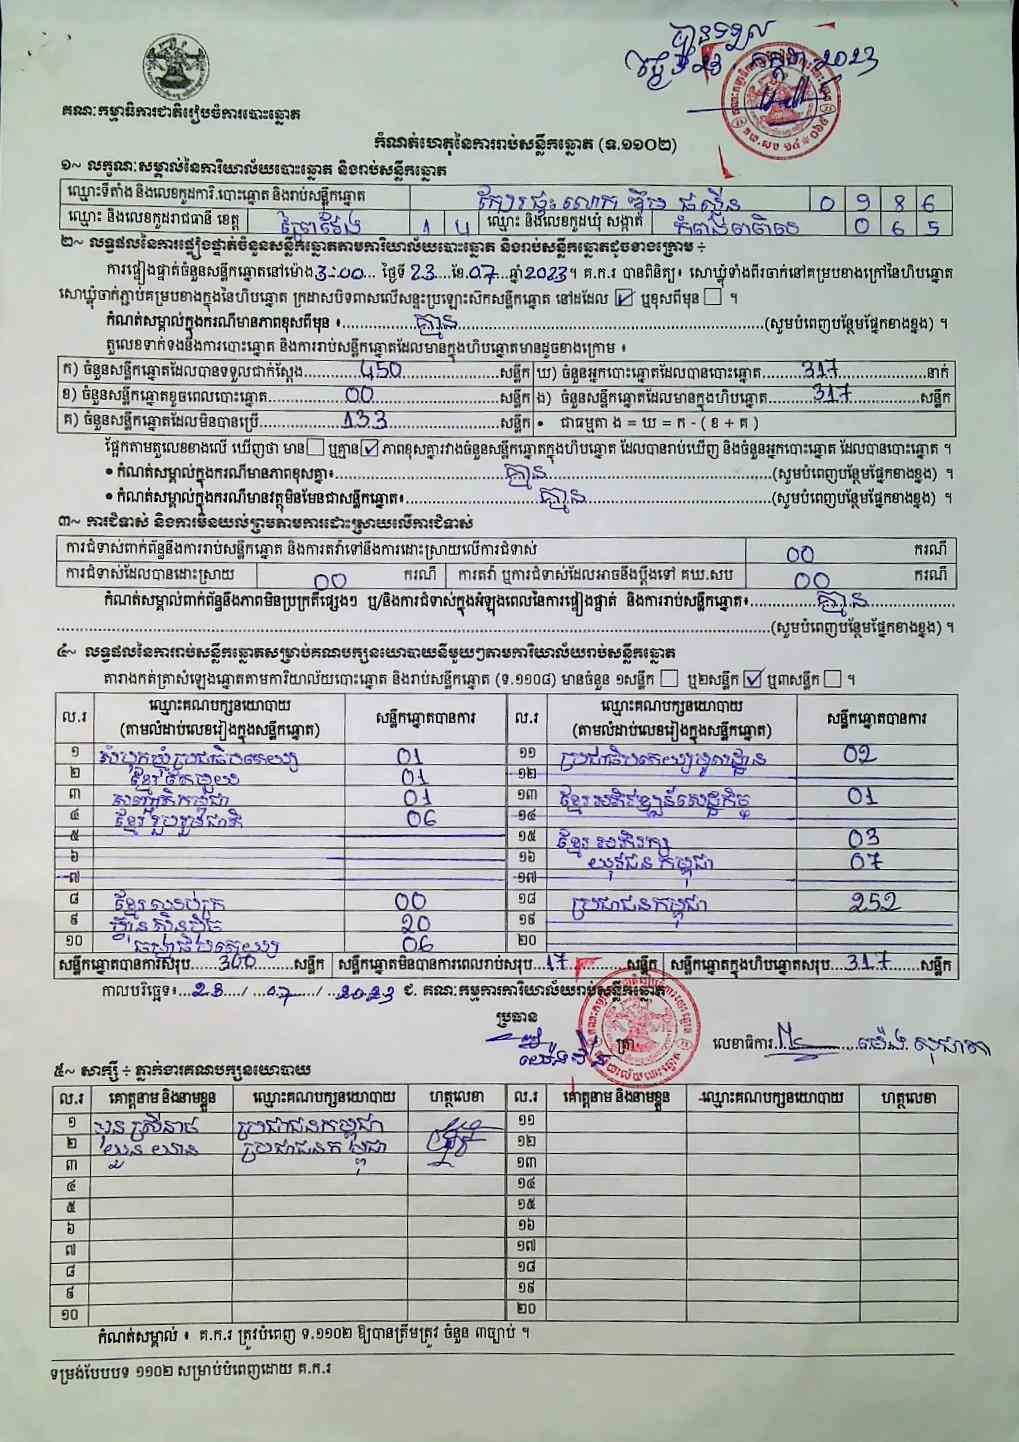 បានទទួល
ថ្ងៃទី 23 កក្កដា 2023
គណៈកម្មាធិការជាតិរៀបចំការបោះឆ្នោត
កំណត់ហេតុនៃការរាប់សន្លឹកឆ្នោត (ទ.១១០២)
១~ លក្ខណៈសម្គាល់នៃការិយាល័យបោះឆ្នោត និងរាប់សន្លឹកឆ្នោត
ឈ្មោះទីតាំង និងលេខកូដការិ.បោះឆ្នោត និងរាប់សន្លឹកឆ្នោត ក្បែរផ្ទះលោក 0 9 8 6
ឈ្មោះ និងលេខកូដរាជធានី ខេត្ត ព្រៃវែង 1 4 ឈ្មោះ និងលេខកូដឃុំ សង្កាត់ 0 6 5
២~ លទ្ធផលនៃការផ្ទៀងផ្ទាត់ចំនួនសន្លឹកឆ្នោតតាមការិយាល័យបោះឆ្នោត និងរាប់សន្លឹកឆ្នោតដូចខាងក្រោម ÷
ការផ្ទៀងផ្ទាត់ចំនួនសន្លឹកឆ្នោតនៅម៉ោង 3:00 ថ្ងៃទី 23 ខែ 07 ឆ្នាំ 2023 ។ គ.ក.រ បានពិនិត្យ៖ សោឃ្លុំទាំងពីរចាក់នៅគម្របខាងក្រៅនៃហិបឆ្នោត
សោឃ្លុំចាក់ភ្ជាប់គម្របខាងក្នុងនៃហិបឆ្នោត ក្រដាសបិទពាសលើសន្ទះប្រឡោះសឹកសន្លឹកឆ្នោត នៅដដែល ☑ ឬខុសពីមុន ☐ ។
កំណត់សម្គាល់ក្នុងករណីមានភាពខុសពីមុន ៖ គ្មាន (សូមបំពេញបន្ថែមផ្នែកខាងខ្នង) ។
តួលេខទាក់ទងនឹងការបោះឆ្នោត និងការរាប់សន្លឹកឆ្នោតដែលមានក្នុងហិបឆ្នោតមានដូចខាងក្រោម ៖
ក) ចំនួនសន្លឹកឆ្នោតដែលបានទទួលជាក់ស្តែង 450 សន្លឹក ឃ) ចំនួនអ្នកបោះឆ្នោតដែលបានបោះឆ្នោត 317 នាក់
ខ) ចំនួនសន្លឹកឆ្នោតខូចពេលបោះឆ្នោត 00 សន្លឹក ង) ចំនួនសន្លឹកឆ្នោតដែលមានក្នុងហិបឆ្នោត 317 សន្លឹក
គ) ចំនួនសន្លឹកឆ្នោតដែលមិនបានប្រើ 133 សន្លឹក • ជាធម្មតា ង = ឃ = ក - ( ខ + គ )
ផ្អែកតាមតួលេខខាងលើ ឃើញថា មាន ☐ ឬគ្មាន ☑ ភាពខុសគ្នារវាងចំនួនសន្លឹកឆ្នោតក្នុងហិបឆ្នោត ដែលបានរាប់ឃើញ និងចំនួនអ្នកបោះឆ្នោត ដែលបានបោះឆ្នោត ។
• កំណត់សម្គាល់ក្នុងករណីមានភាពខុសគ្នា៖ គ្មាន (សូមបំពេញបន្ថែមផ្នែកខាងខ្នង) ។
• កំណត់សម្គាល់ក្នុងករណីមានវត្ថុមិនមែនជាសន្លឹកឆ្នោត៖ គ្មាន (សូមបំពេញបន្ថែមផ្នែកខាងខ្នង) ។
៣~ ការជំទាស់ និងការមិនយល់ព្រមតាមការដោះស្រាយលើការជំទាស់
ការជំទាស់ពាក់ព័ន្ធនឹងការរាប់សន្លឹកឆ្នោត និងការតវ៉ាទៅនឹងការដោះស្រាយលើការជំទាស់ 00 ករណី
ការជំទាស់ដែលបានដោះស្រាយ 00 ករណី ការតវ៉ា ឬការជំទាស់ដែលអាចនឹងប្តឹងទៅ គឃ.សប 00 ករណី
កំណត់សម្គាល់ពាក់ព័ន្ធនឹងភាពមិនប្រក្រតីផ្សេងៗ ឬ/និងការជំទាស់ក្នុងអំឡុងពេលនៃការផ្ទៀងផ្ទាត់ និងការរាប់សន្លឹកឆ្នោត៖ គ្មាន
(សូមបំពេញបន្ថែមផ្នែកខាងខ្នង) ។
៤~ លទ្ធផលនៃការរាប់សន្លឹកឆ្នោតសម្រាប់គណបក្សនយោបាយនីមួយៗតាមការិយាល័យរាប់សន្លឹកឆ្នោត
តារាងកត់ត្រាសំឡេងឆ្នោតតាមការិយាល័យបោះឆ្នោត និងរាប់សន្លឹកឆ្នោត (ទ.១១០៨) មានចំនួន ១សន្លឹក ☐ ឬ២សន្លឹក ☑ ឬ៣សន្លឹក ☐ ។
ល.រ ឈ្មោះគណបក្សនយោបាយ (តាមលំដាប់លេខរៀងក្នុងសន្លឹកឆ្នោត) សន្លឹកឆ្នោតបានការ ល.រ ឈ្មោះគណបក្សនយោបាយ (តាមលំដាប់លេខរៀងក្នុងសន្លឹកឆ្នោត) សន្លឹកឆ្នោតបានការ
១ សំបុកឃ្មុំប្រជាធិបតេយ្យ 01 ១១ ប្រជាធិបតេយ្យមូលដ្ឋាន 02
២ ខ្មែរតែមួយ 01 ១២
៣ សញ្ជាតិកម្ពុជា 01 ១៣ ខ្មែរអភិវឌ្ឍន៍សេដ្ឋកិច្ច 01
៤ ខ្មែររួបរួមជាតិ 06 ១៤
៥ ១៥ ខ្មែរអភិរក្ស 03
៦ ១៦ យុវជនកម្ពុជា 07
៧ ១៧
៨ ខ្មែរឈប់ក្រ 00 ១៨ ប្រជាជនកម្ពុជា 252
៩ ហ៊្វុនស៊ិនប៉ិច 20 ១៩
១០ ធម្មាធិបតេយ្យ 06 ២០
សន្លឹកឆ្នោតបានការសរុប 300 សន្លឹក សន្លឹកឆ្នោតមិនបានការពេលរាប់សរុប 17 សន្លឹក សន្លឹកឆ្នោតក្នុងហិបឆ្នោតសរុប 317 សន្លឹក
កាលបរិច្ឆេទ៖ 23 / 07 / 2023 ជ. គណៈកម្មការការិយាល័យរាប់សន្លឹកឆ្នោត
ប្រធាន
ត្រា លេខាធិការ
៥~ សាក្សី ÷ ភ្នាក់ងារគណបក្សនយោបាយ
ល.រ គោត្តនាម និងនាមខ្លួន ឈ្មោះគណបក្សនយោបាយ ហត្ថលេខា ល.រ គោត្តនាម និងនាមខ្លួន ឈ្មោះគណបក្សនយោបាយ ហត្ថលេខា
១ ប្រជាជនកម្ពុជា ១១
២ ប្រជាជនកម្ពុជា ១២
៣ ១៣
៤ ១៤
៥ ១៥
៦ ១៦
៧ ១៧
៨ ១៨
៩ ១៩
១០ ២០
កំណត់សម្គាល់ ៖ គ.ក.រ ត្រូវបំពេញ ទ.១១០២ ឱ្យបានត្រឹមត្រូវ ចំនួន ៣ច្បាប់ ។
ទម្រង់បែបបទ ១១០២ សម្រាប់បំពេញដោយ គ.ក.រ